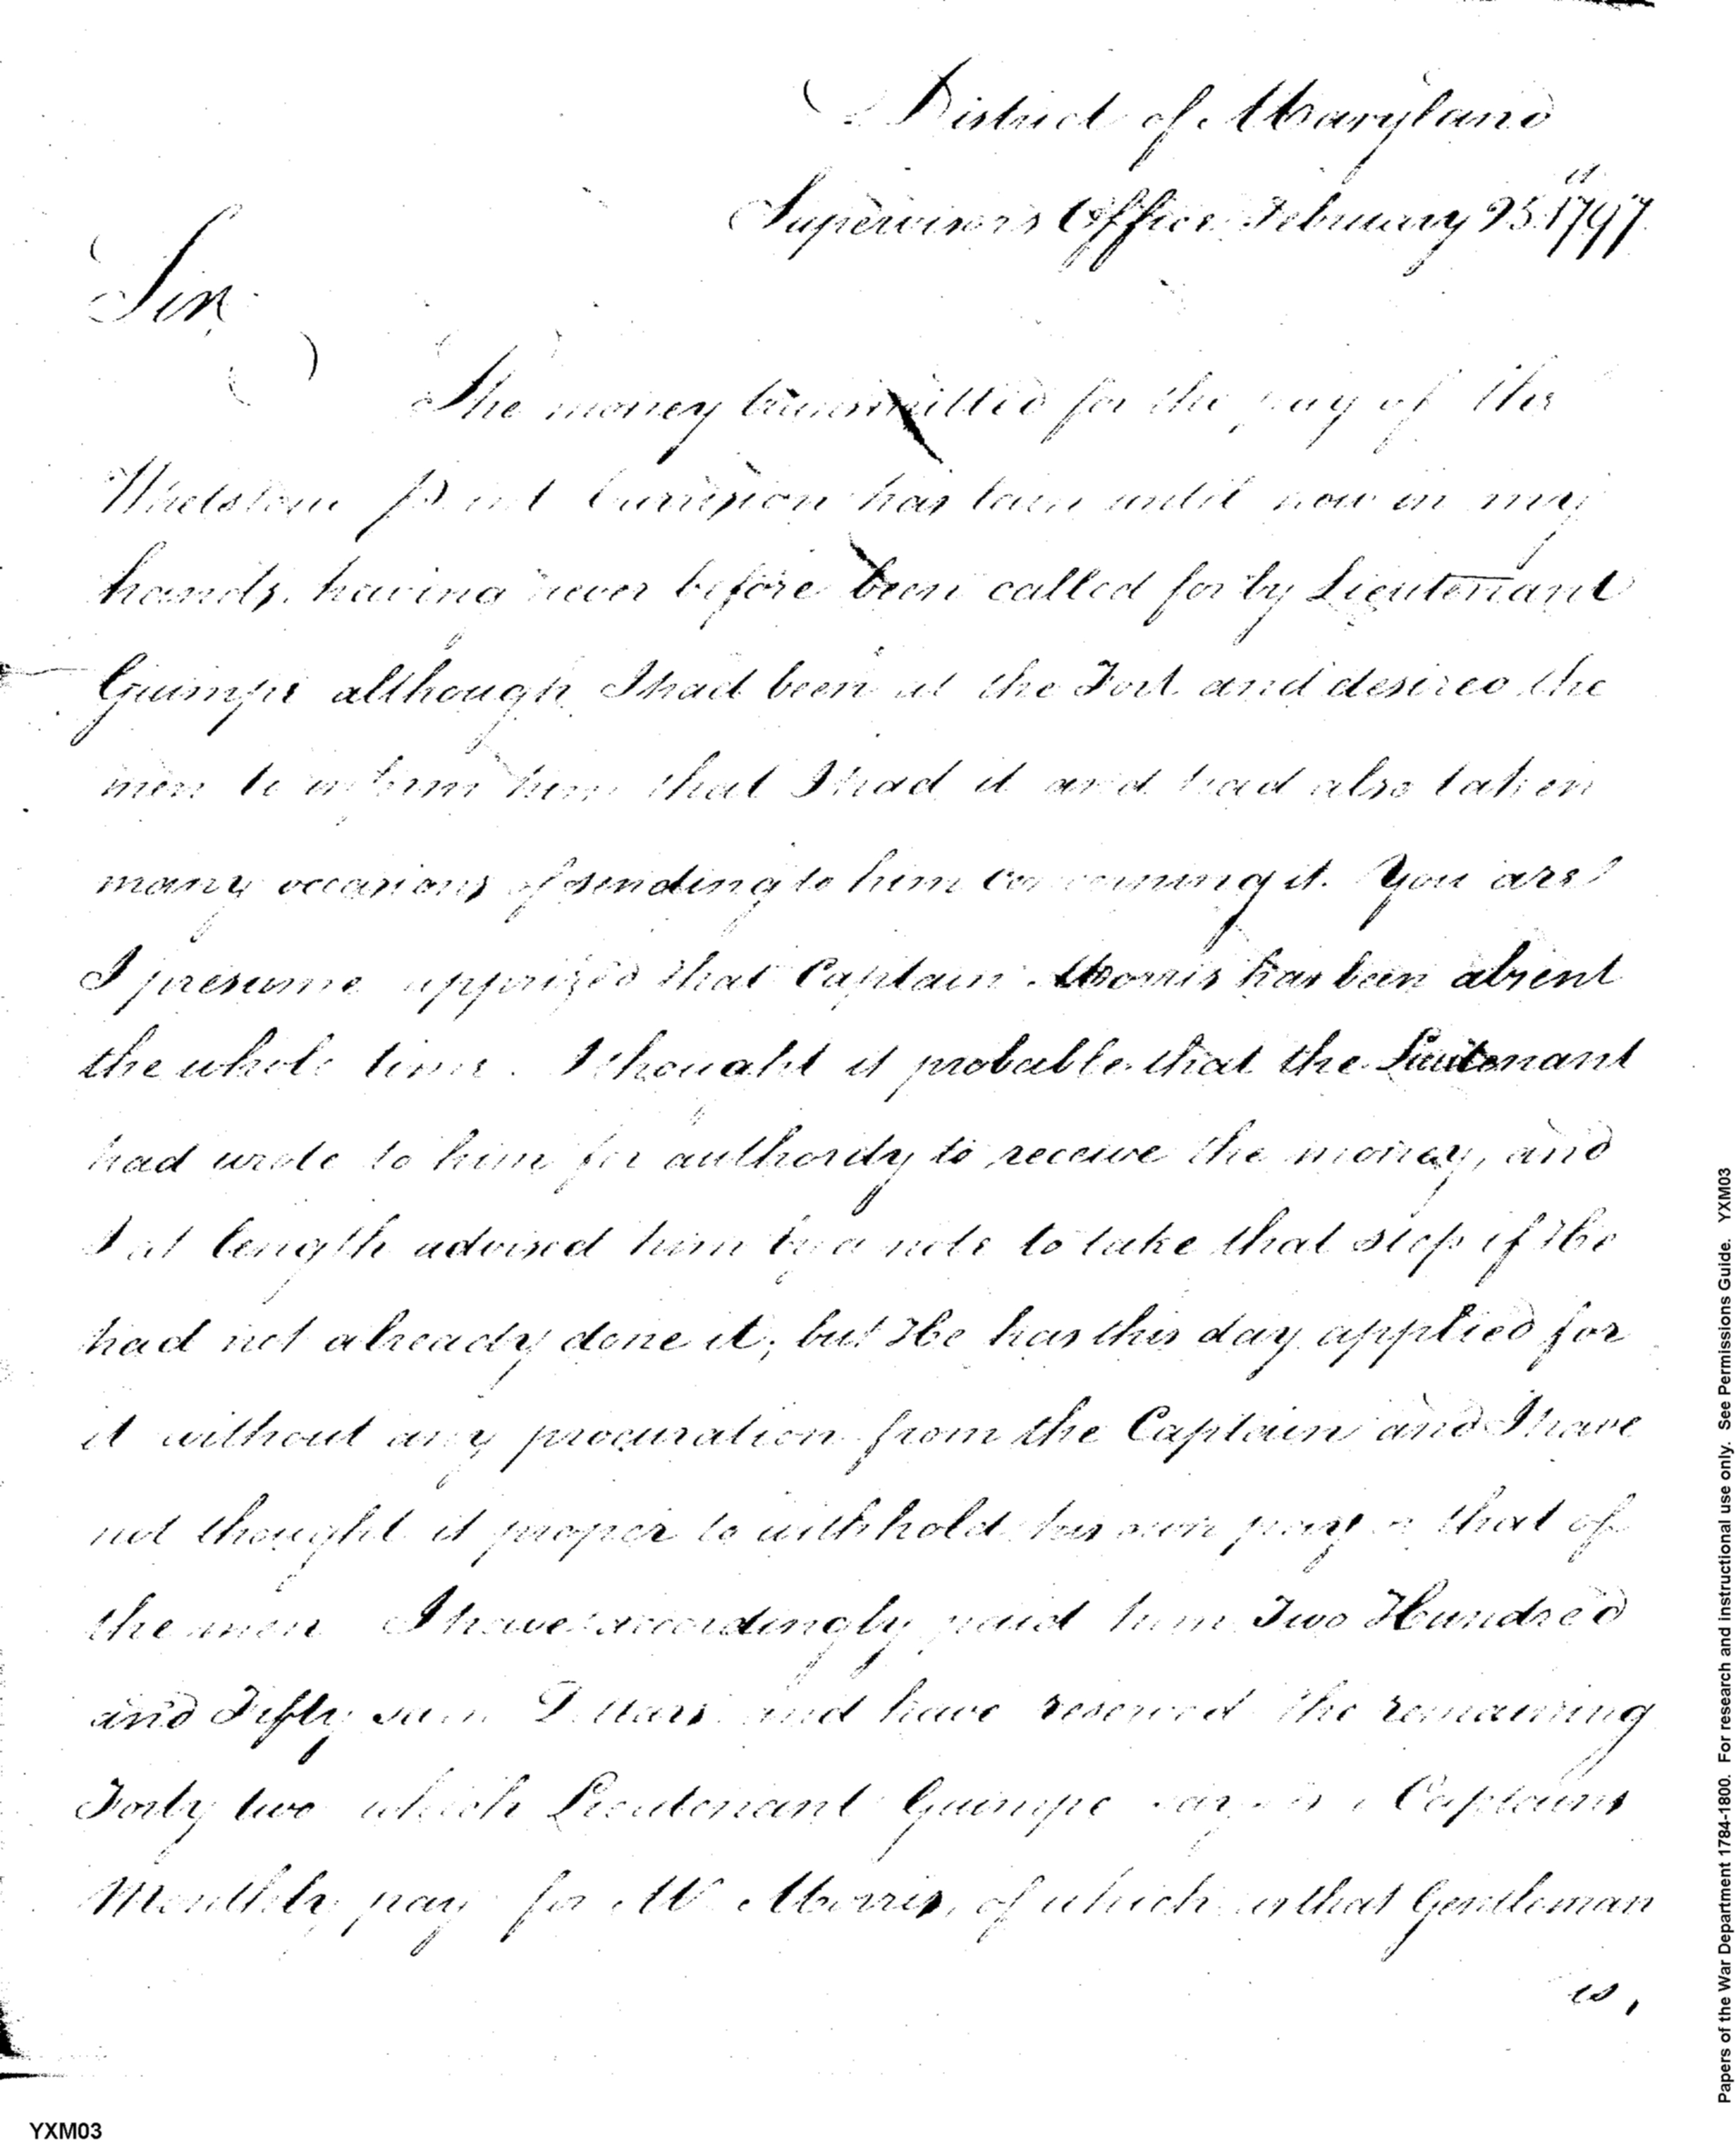 District of Maryland
Supervisor's Office February 25th 1797
Sir
The money transmitted for the pay of the
Whetstone Point Garrison has lain until now in my
hands, having never before been called for by Lieutenant
Guimpe although I had been at the Fort and desired the
men to inform him that I had it and had also taken
many occasions of sending to him concerning it. You are
I presume apprized that Captain Morris has been absent
the whole time. I thought it probable that the Lieutenant
had wrote to him for authority to receive the money, and
I at length advised him by a note to take that step if He
had not already done it; but He has this day applied for
it without any procuration from the Captain and I have
not thought it proper to withhold his own pay or that of
the men I have accordingly paid him Two Hundred
and Fifty Dollars and have reserved the remaining
Forty two which Lieutenant Guimpe says is a Captains
Monthly pay for Mr Morris, of which as that Gentleman
is,
YXM03
Papers of the War Department 1784-1800. For research and instructional use only. See Permissions Guide. YXM03